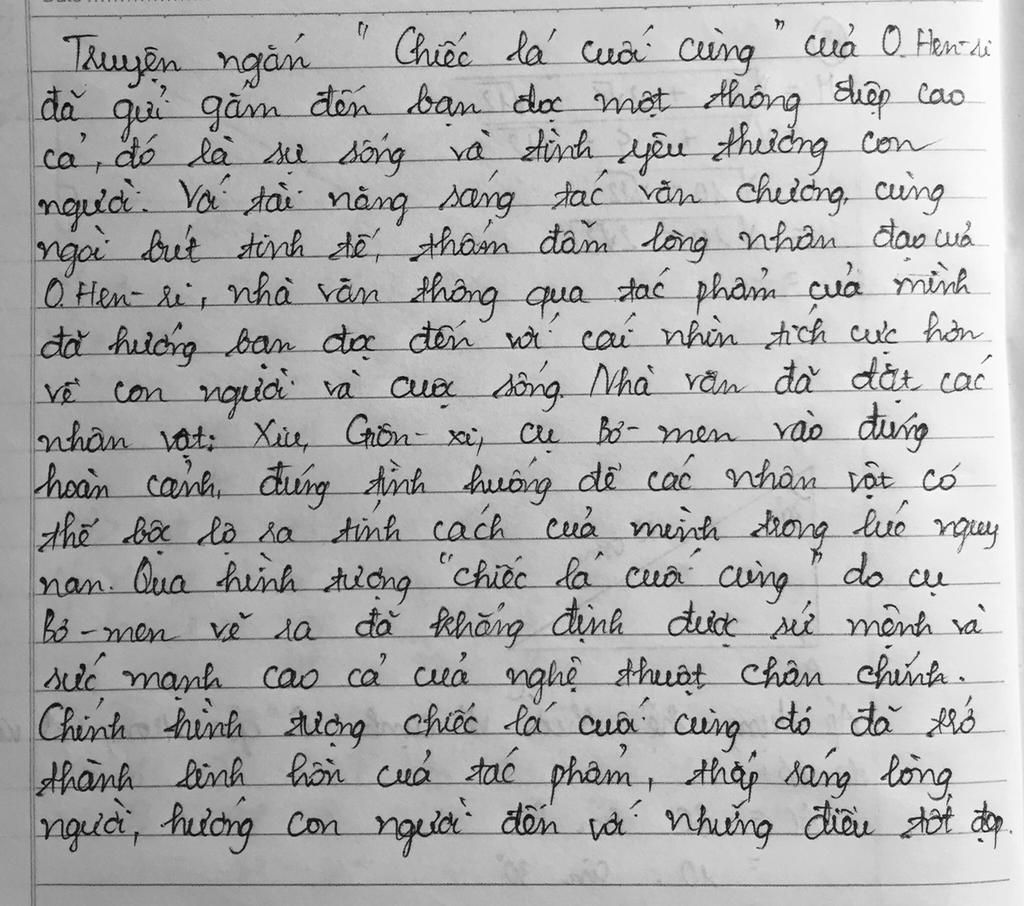 Truyện ngắn " Chiếc lá cuối cùng " của O. Hen-ri
đã gửi gắm đến bạn đọc một thông điệp cao
cả, đó là sự sống và tình yêu thương con
người. Với tài năng sáng tác văn chương, cùng
ngòi bút tinh tế, thấm đẫm lòng nhân đạo của
O. Hen-ri, nhà văn thông qua tác phẩm của mình
đã hướng bạn đọc đến với cái nhìn tích cực hơn
về con người và cuộc sống. Nhà văn đã đặt các
nhân vật: Xiu, Giôn-xi, cụ Bơ-men vào đúng
hoàn cảnh, đúng tình huống để các nhân vật có
thể bộc lộ ra tính cách của mình trong lúc nguy
nan. Qua hình tượng "chiếc lá cuối cùng" do cụ
Bơ-men vẽ ra đã khẳng định được sứ mệnh và
sức mạnh cao cả của nghệ thuật chân chính.
Chính hình tượng chiếc lá cuối cùng đó đã trở
thành linh hồn của tác phẩm, thắp sáng lòng
người, hướng con người đến với những điều tốt đẹp.